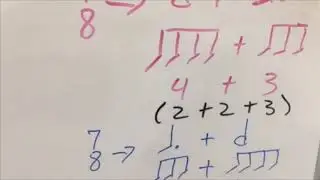 8
4 + 3
(2 + 2 + 3)
7 +
8 → +